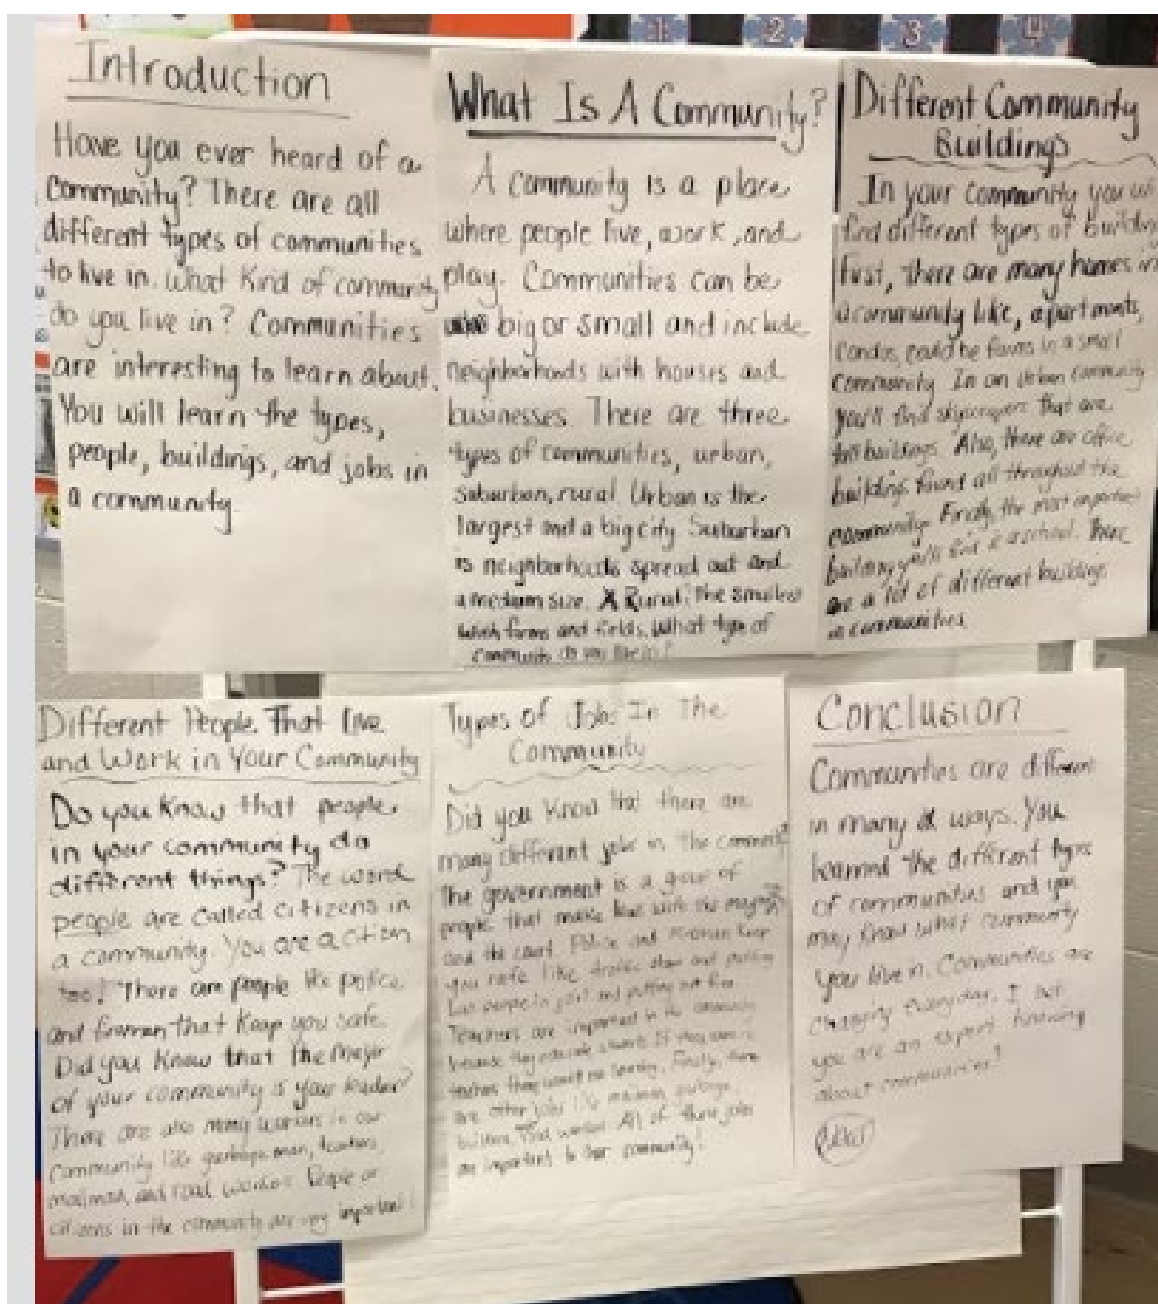 1 2 3 4
Introduction
Have you ever heard of a
community? There are all
different types of communities
to live in. What kind of community
do you live in? Communities
are interesting to learn about.
You will learn the types,
people, buildings, and jobs in
a community.
What Is A Community?
A community is a place
where people live, work, and
play. Communities can be
big or small and include
neighborhoods with houses and
businesses. There are three
types of communities, urban,
suburban, rural. Urban is the
largest and a big city. Suburban
is neighborhoods spread out and
a medium size. Rural: the smallest
with farms and fields. What type of
community do you live in?
Different Community
Buildings
In your community you wi
find different types of buildin
First, there are many homes in
a community like, apartments,
condos, could be farms in a small
community. In an urban community
you'll find skyscrapers that are
buildings. Also, there are office
buildings found all throughout the
community. Finally, the most important
building you'll find is a school. There
are a lot of different buildings
in communities
Different People That live
and Work in Your Community
Do you know that people
in your community do
different things? The word
people are called citizens in
a community. You are a citizen
too! There are people like police
and firemen that keep you safe.
Did you know that the mayor
of your community is your leader?
There are also many workers in our
community like garbage man, teachers,
mailman, and road workers. People or
citizens in the community are very important!
Types of Jobs In The
Community
Did you know that there are
many different jobs in the
The government is a group of
people that make laws with the
and the court. Police and keep
you safe like and putting
people in jail and putting out fire
Teachers are important in the community
because they
Finally, there
are other jobs like mailman, garbage,
builders, road worker. All of these jobs
are important to our community!
Conclusion
Communities are different
in many ways. You
learned the different types
of communities and you
may know what community
you live in. Communities are
changing everyday. I bet
you are an expert knowing
about communities!